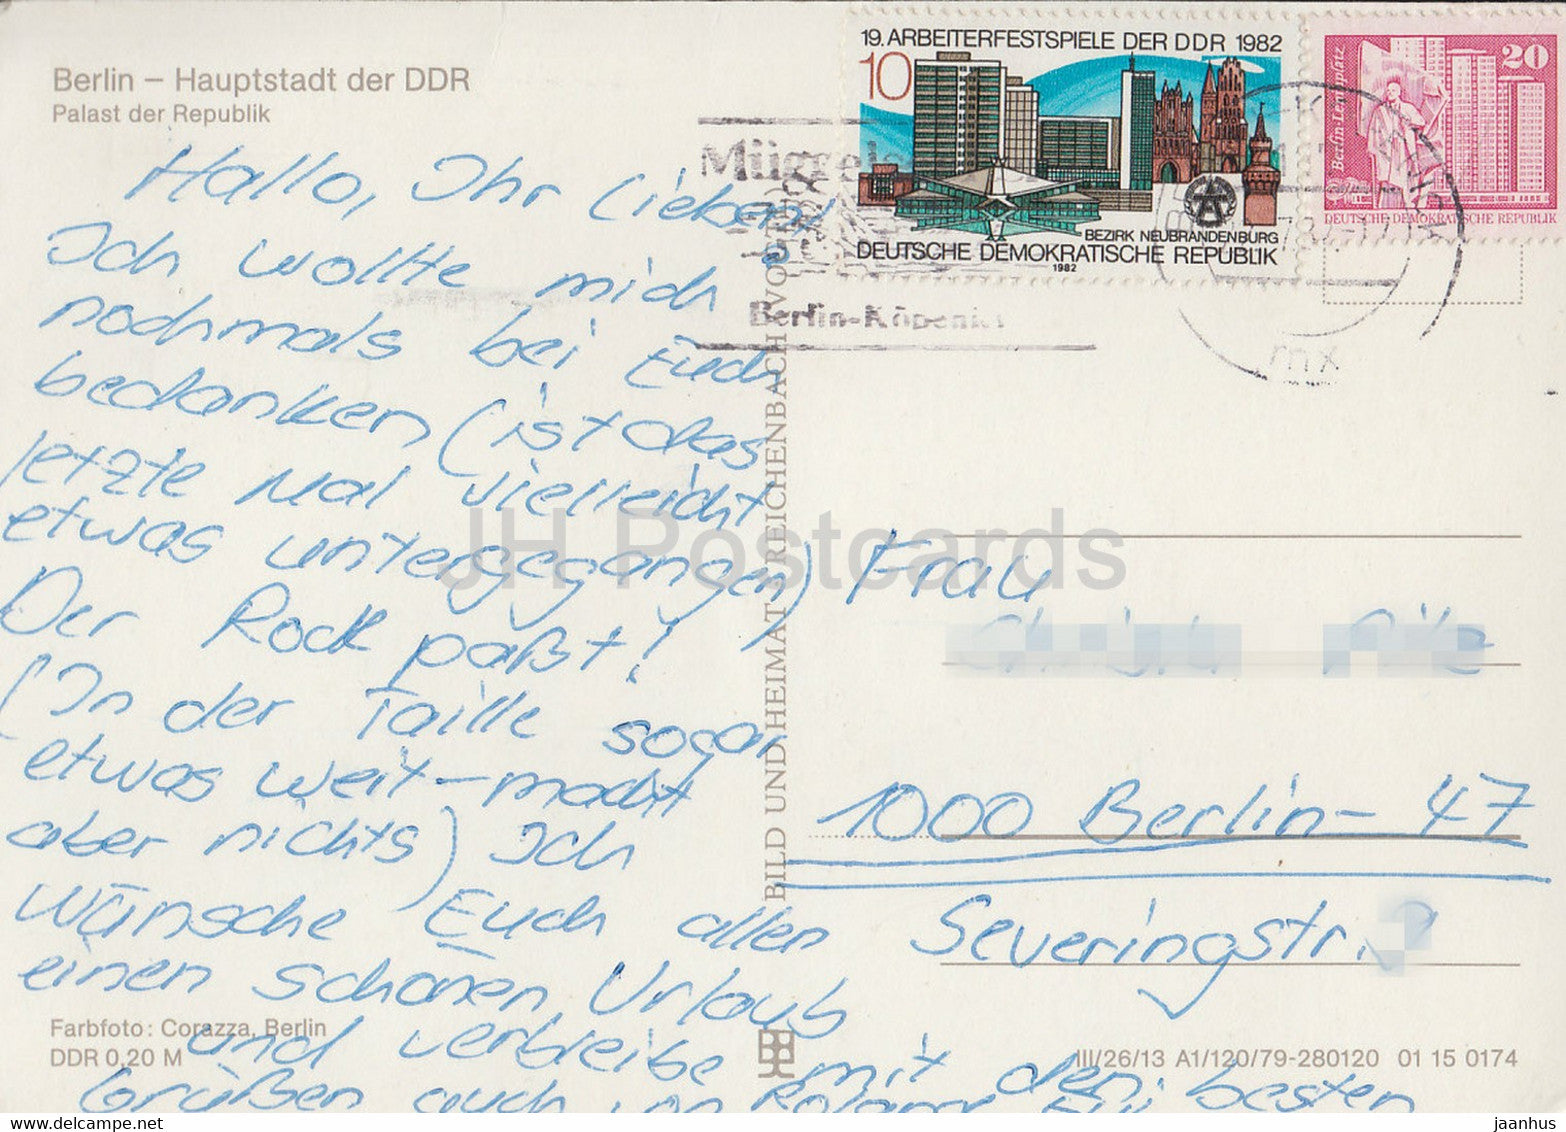 Berlin – Hauptstadt der DDR
Palast der Republik
19. ARBEITERFESTSPIELE DER DDR 1982
10
BEZIRK NEUBRANDENBURG
DEUTSCHE DEMOKRATISCHE REPUBLIK
1982
20
Berlin-Leninplatz
DEUTSCHE DEMOKRATISCHE REPUBLIK
Berlin-Köpenick
mx
Hallo, Ihr Lieben!
Ich wollte mich
nochmals bei Euch
bedanken (ist das
letzte Mal vielleicht
etwas untergegangen)
Der Rock paßt!
(In der Taille sogar
etwas weit – macht
aber nichts) Ich
wünsche Euch allen
einen schönen Urlaub
und verbleibe mit den besten
Grüßen auch von Roland
BILD UND HEIMAT REICHENBACH
JH Postcards
Frau
1000 Berlin – 47
Severingstr.
Farbfoto: Corazza, Berlin
DDR 0,20 M
III/26/13 A1/120/79-280120 01 15 0174
www.delcampe.net
jaanhus